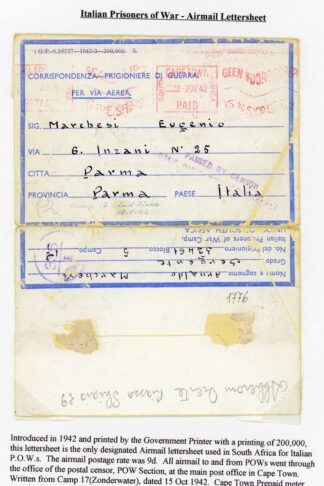 Italian Prisoners of War - Airmail Lettersheet
G.P.-S.10237-1942-3-200,000. S.
CORRISPONDENZA PRIGIONIERI DI GUERRA.
PER VIA AEREA.
CAPE TOWN
20 X 42
PAID
GEEN WOORD
SIG. Marchesi Eugenio
VIA G. Inzani N° 25
PASSED BY CENSOR
CITTA Parma
PROVINCIA Parma PAESE Italia
Nome e cognome Arnaldo Marchesi
Grado Sergente
No. del Prigioniero 32461 Blocco 5 Campo
Italian Prisoners of War Camp,
UNION OF SOUTH AFRICA
1776
Introduced in 1942 and printed by the Government Printer with a printing of 200,000,
this lettersheet is the only designated Airmail lettersheet used in South Africa for Italian
P.O.W.s. The airmail postage rate was 9d. All airmail to and from POWs went through
the office of the postal censor, POW Section, at the main post office in Cape Town.
Written from Camp 17(Zonderwater), dated 15 Oct 1942. Cape Town Prepaid meter